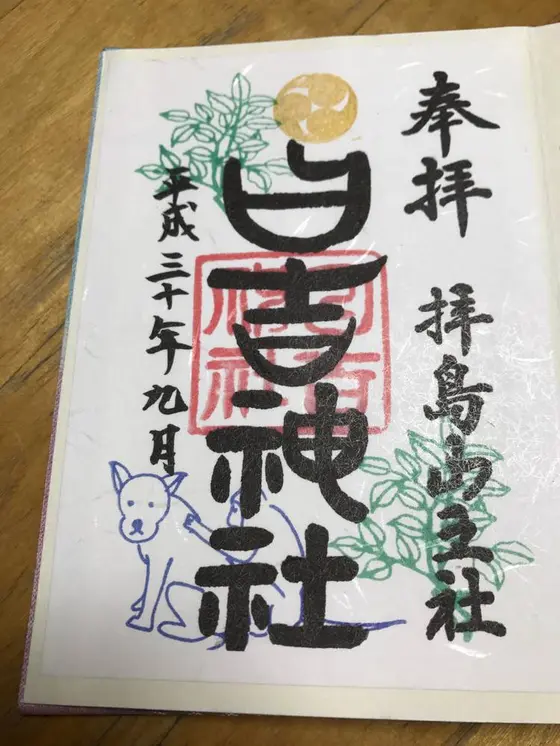 奉拝
拝島山王社
日吉神社
平成三十年九月